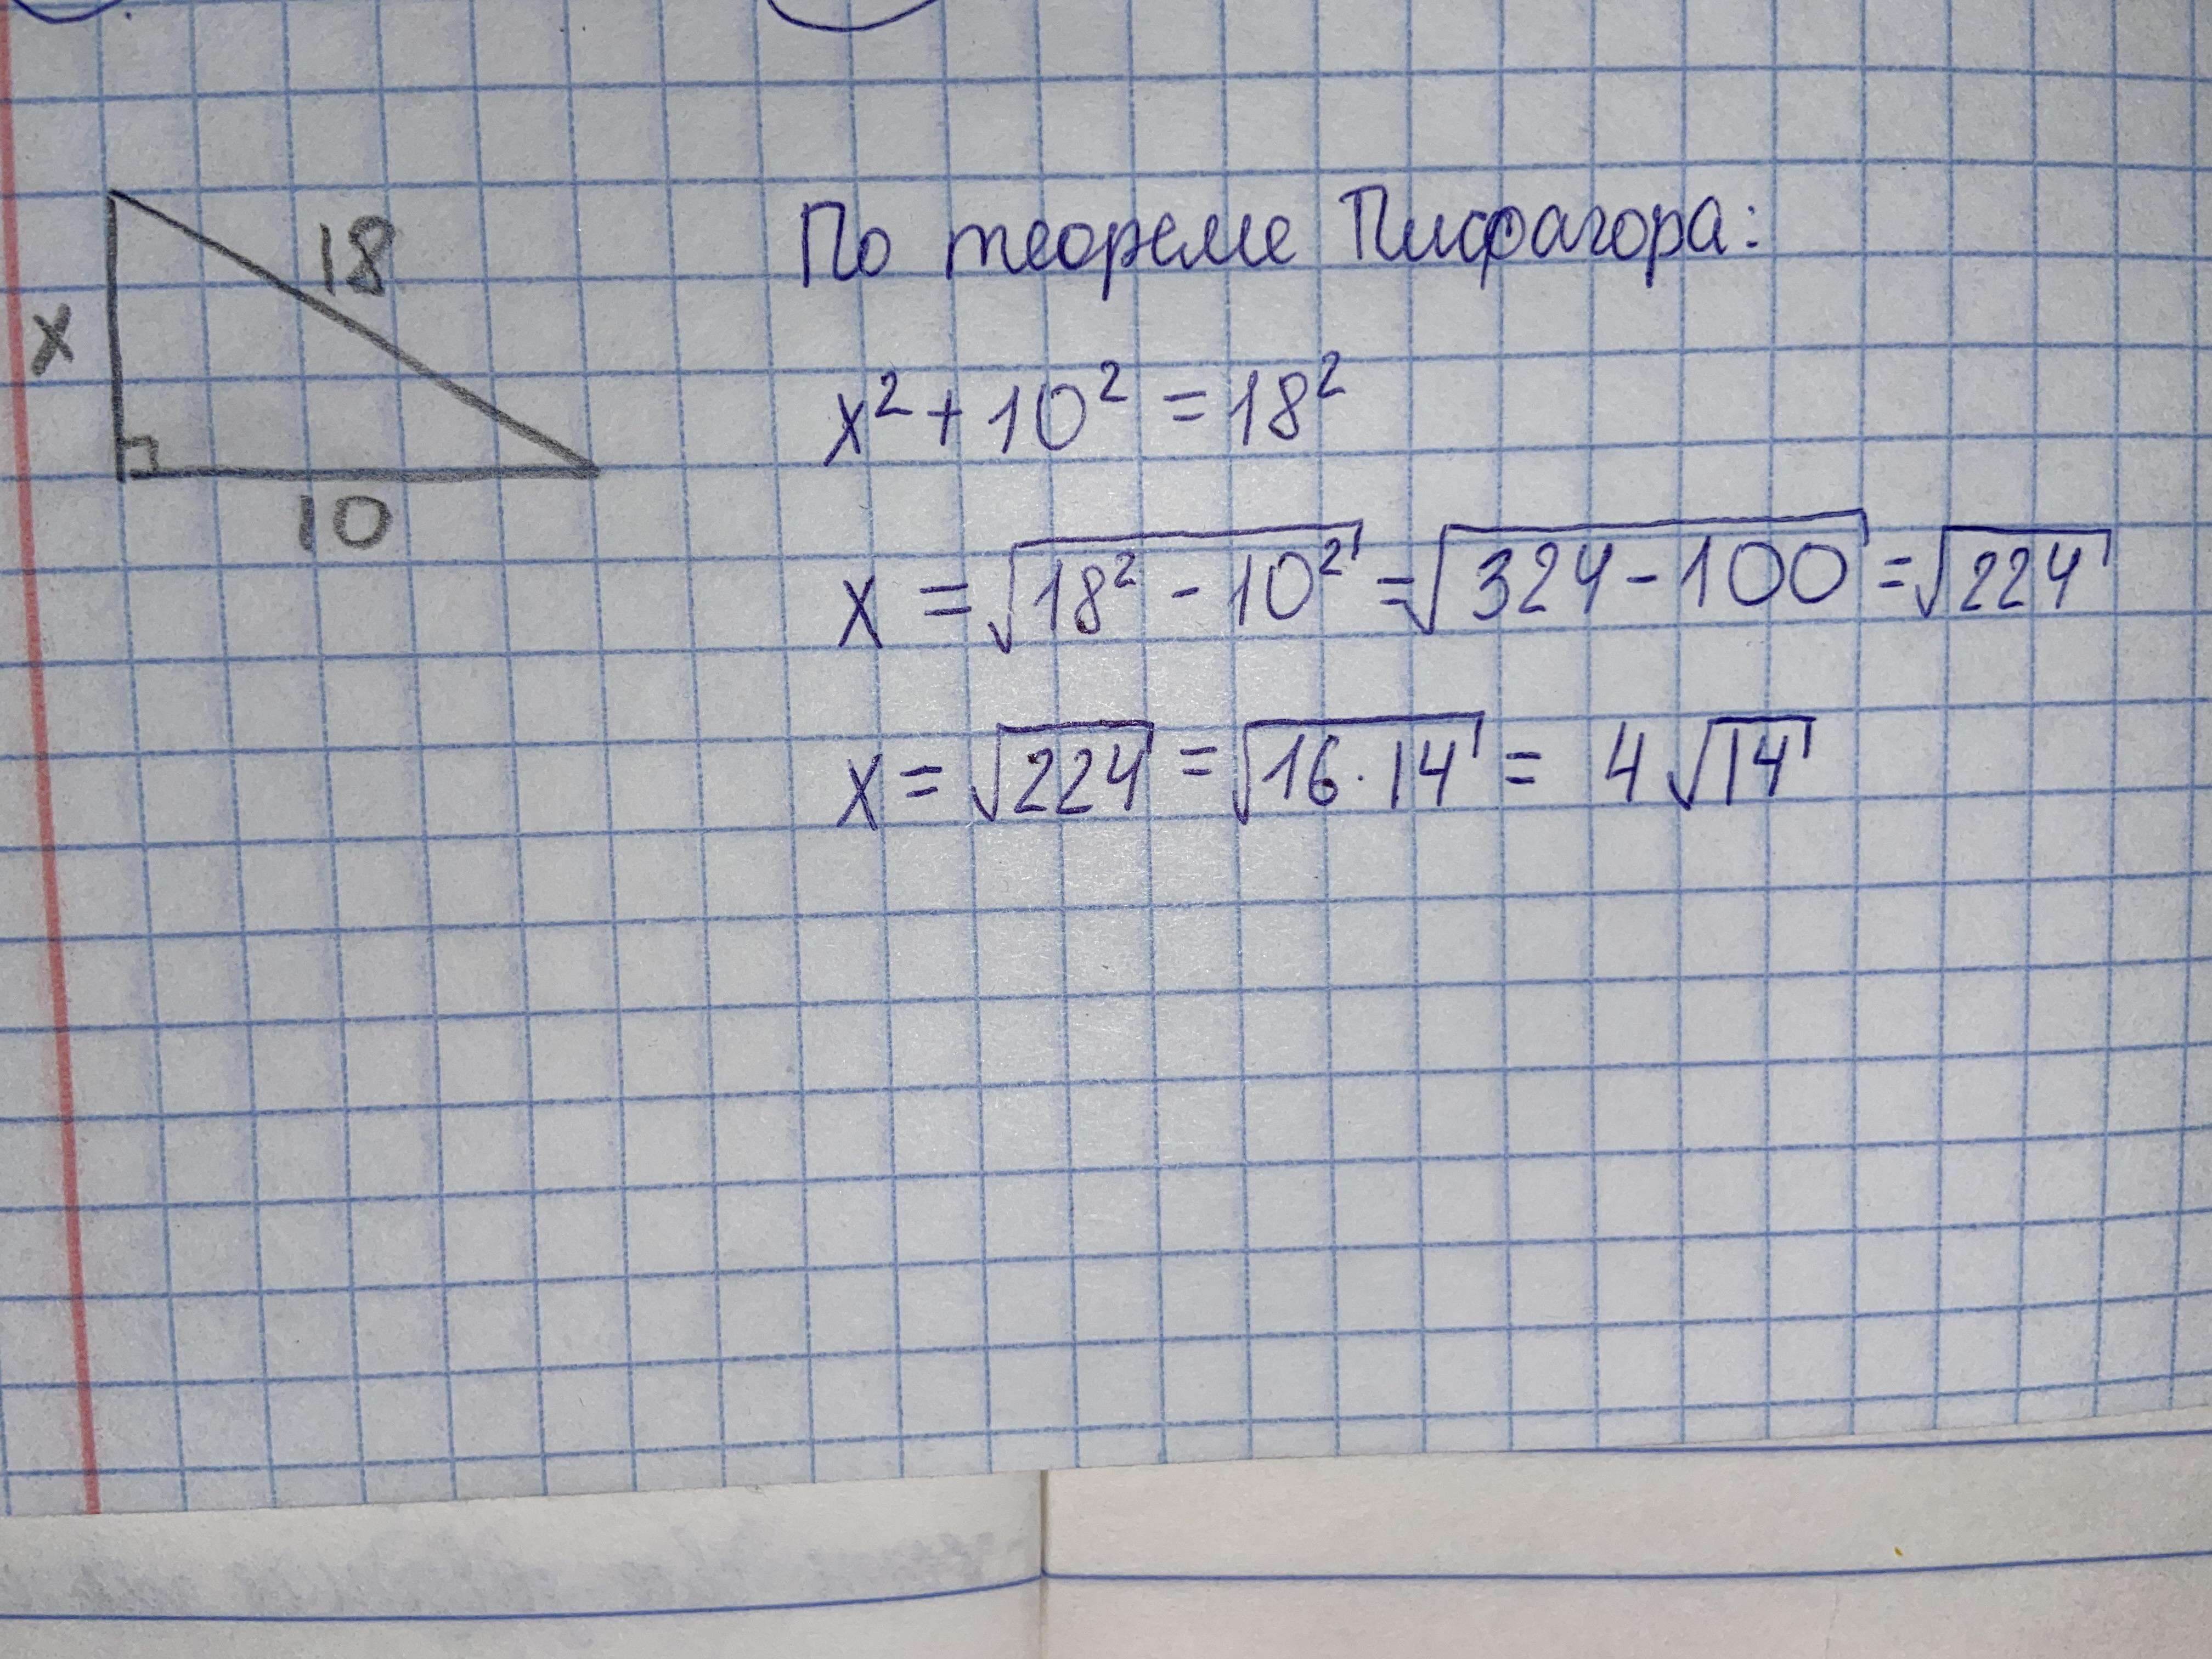 18
x
10
По теореме Пифагора:
x² + 10² = 18²
x = √(18² - 10²) = √(324 - 100) = √224
x = √224 = √(16 · 14) = 4√14